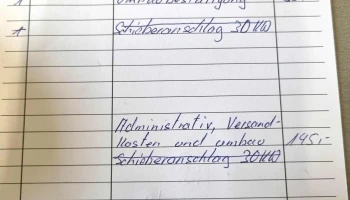 * Schieberanschlag 30KW
Administrativ, Versand-
kosten und umbau 145,-
Schieberanschlag 30KW